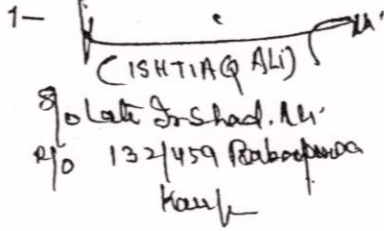 1-
(ISHTIAQ ALI)
S/o Late Irshad. Ali.
R/o 132/459 Babupurwa